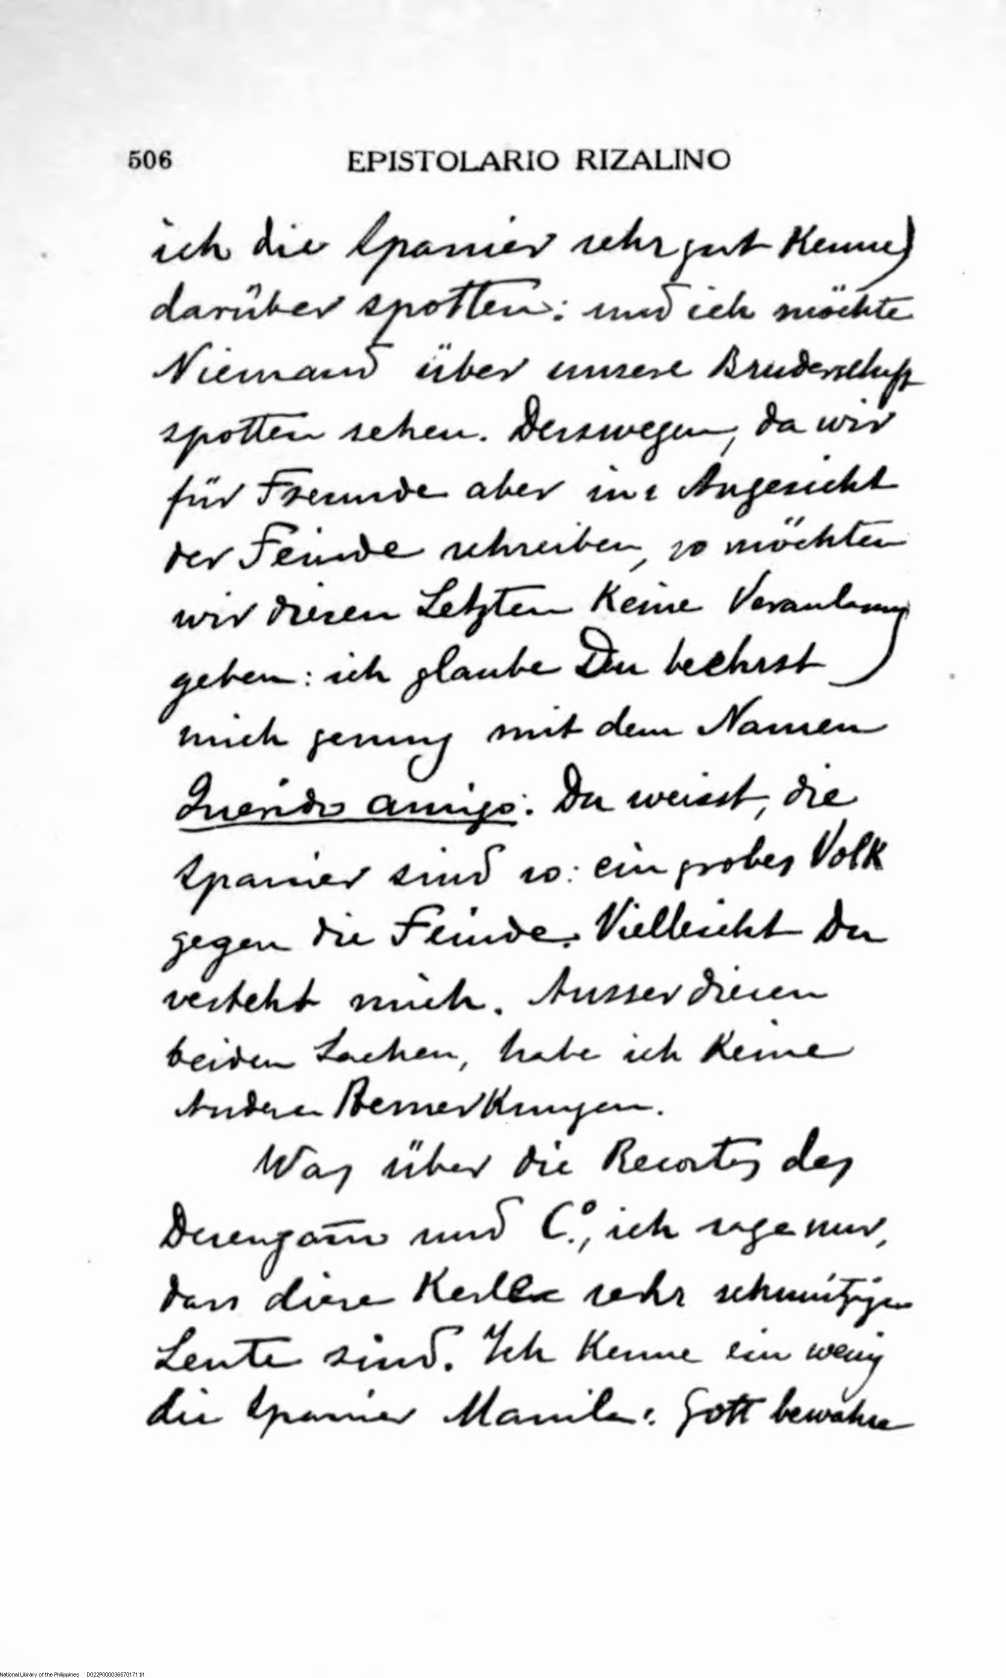 506 EPISTOLARIO RIZALINO
ich die Spanier sehr gut Kenne)
darüber spotten: und ich möchte
Niemand über unsere Bruderschaft
spotten sehen. Desswegen, da wir
für Freunde aber ins Angesicht
der Feinde schreiben, so möchten
wir diesen Letzten Keine Veranlassung
geben: ich glaube Du beehrst
mich genug mit dem Namen
Querido amigo. Du weisst, die
Spanier sind so: ein grobes Volk
gegen die Feinde. Vielleicht Du
versteht mich. Ausser diesen
beiden Sachen, habe ich Keine
Anderen BemerKungen.
Was über die Recortes des
Desengaño und Cº., ich sage nur,
dass diese Kerle sehr schmützigen
Leute sind. Ich Kenne ein wenig
die Spanier Manila's. Gott bewahre
National Library of the Philippines